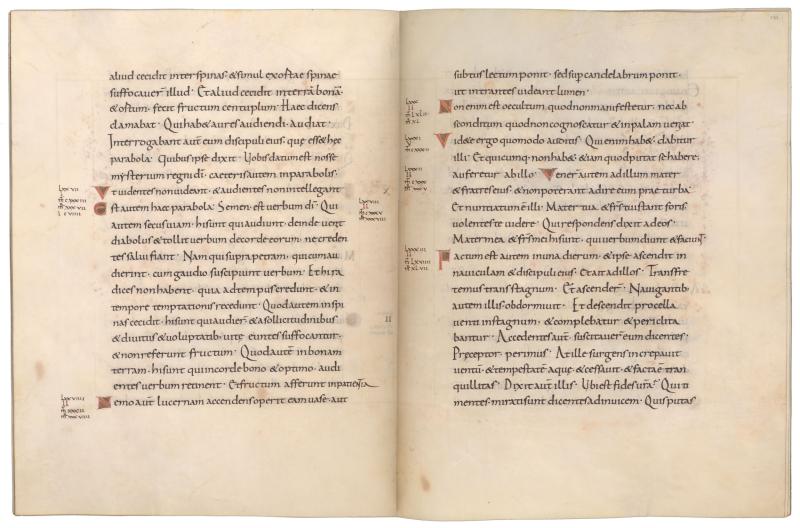 aliud cecidit inter spinas · & simul exortae spinae
suffocaver̄ illud · Et aliud cecidit in terrā bonā ·
& ortum · fecit fructum centuplum · Haec dicens
clamabat · Qui hab& aures audiendi · audiat ·
Interrogabant aut̄ eum discipuli eius · que ess& hęc
parabola · Quibus ipse dixit · Vobis datum est nosse
mysterium regni dī · caeteris autem in parabolis ·
LXXVII
II
Vt videntes non videant · & audientes non intellegant
Est autem haec parabola · Semen · est verbum dī · Qui
LXXVIII
II
autem secus viam · hi sunt qui audiunt · deinde venit
diabolus & tollit verbum de corde eorum · ne creden
tes salvi fiant · Nam qui supra petram · qui cum au
dierint · cum gaudio suscipiunt verbum · Et hi ra
dices non habent · quia ad tempus credunt · & in
tempore temptationis recedunt · Quod autem in spi
nas cecidit · hi sunt qui audier̄ · & a sollicitudinibus
& divitiis & voluptatib · vitę euntes suffocantur ·
& non referunt fructum · Quod aut̄ in bonam
terram · hi sunt qui in corde bono & optimo · audi
entes verbum retinent · Et fructum afferunt in patientia
LXXVIIII
II
Nemo aut̄ lucernam accendens operit eam vase · aut
subtus lectum ponit · sed sup̄ candelabrum ponit ·
ut intrantes videant lumen ·
LXXX
II
Non enim est occultum · quod non manifestetur · nec ab
sconditum quod non cognoscatur & in palam veniat
LXXXI
II
Videte ergo quomodo auditis · Qui enim hab& · dabitur
illi · Et quicumq · non hab& · & iam quod putat se habere ·
LXXXII
II
auferetur ab illo · Vener̄ autem ad illum mater
& fratres eius · & non poterant adire eum prae turba ·
Et nuntiatum ē illi · Mater tua & fr̄s tui stant foris
volentes te videre · Qui respondens dixit ad eos ·
Mater mea & fr̄s mei hi sunt · qui verbum dī audiunt & faciunt ·
LXXXIII
II
Factum est autem in una dierum · & ipse ascendit in
naviculam & discipuli eius · Et ait ad illos · Transfre
temus trans stagnum · Et ascender̄ · Navigantib ·
autem illis obdormiuit · Et descendit procella
venti in stagnum · & complebatur & periclita
bantur · Accedentes aut̄ · suscitaver̄ eum dicentes ·
Pręceptor · perimus · At ille surgens increpavit
ventū · & tempestatē aquę · & cessavit · & facta ē tran
quillitas · Dixit aut̄ illis · Ubi est fides vrā · Qui ti
mentes · mirati sunt dicentes ad invicem · Quis putas